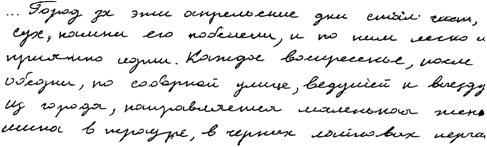 ... Город за эти апрельские дни стал чист,
сух, камни его побелели, и по ним легко и
приятно идти. Каждое воскресенье, после
обедни, по соборной улице, ведущей к выезду
из города, направляется маленькая жен
щина в трауре, в черных лайковых перча